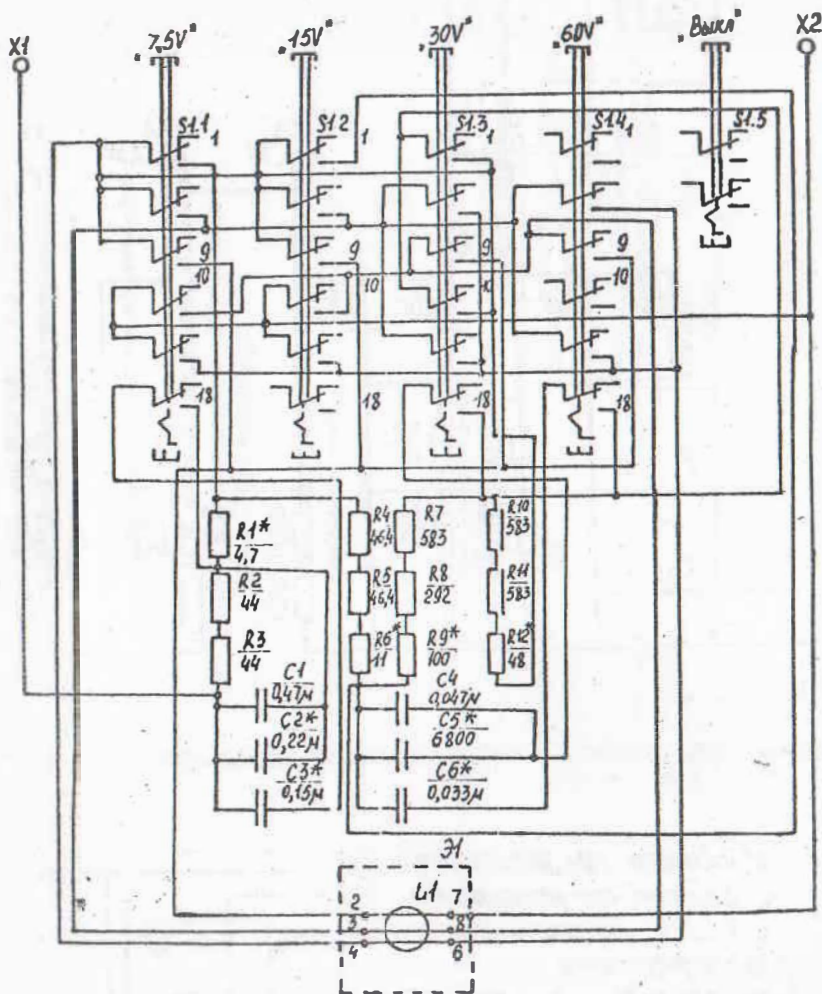 X1
„7,5V"
„15V"
„30V"
„60V"
„Выкл"
X2
S1.1
1
S1.2
1
S1.3
1
S1.4
1
S1.5
9
9
9
9
10
10
10
10
18
18
18
18
R1*
4,7
R2
44
R3
44
R4
46,4
R5
46,4
R6*
11
R7
583
R8
292
R9*
100
R10
583
R11
583
R12*
48
C1
0,47м
C2*
0,22м
C3*
0,15м
C4
0,047м
C5*
6800
C6*
0,033м
Э1
L1
2
3
4
7
8
6